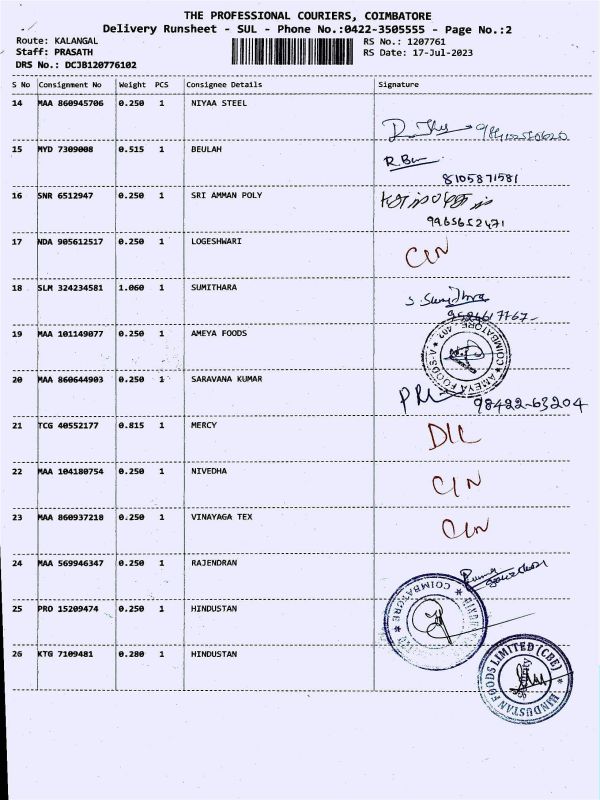 THE PROFESSIONAL COURIERS, COIMBATORE
Delivery Runsheet - SUL - Phone No.:0422-3505555 - Page No.:2
Route: KALANGAL
RS No.: 1207761
Staff: PRASATH
RS Date: 17-Jul-2023
DRS No.: DCJB120776102
S No Consignment No Weight PCS Consignee Details Signature
14 MAA 860945706 0.250 1 NIYAA STEEL
15 MYD 7309008 0.515 1 BEULAH R.Ben
8105871581
16 SNR 6512947 0.250 1 SRI AMMAN POLY
9965652471
17 NDA 905612517 0.250 1 LOGESHWARI CIN
18 SLM 324234581 1.060 1 SUMITHARA S. Sumithra
9524617767
19 MAA 101149077 0.250 1 AMEYA FOODS
COIMBATORE - 402 ★ AMEYA FOODS
20 MAA 860644903 0.250 1 SARAVANA KUMAR
98422-63204
21 TCG 40552177 0.815 1 MERCY DIL
22 MAA 104180754 0.250 1 NIVEDHA CIN
23 MAA 860937218 0.250 1 VINAYAGA TEX CIN
24 MAA 569946347 0.250 1 RAJENDRAN
25 PRO 15209474 0.250 1 HINDUSTAN
COIMBATORE
26 KTG 7109481 0.280 1 HINDUSTAN
HINDUSTAN FOODS LIMITED (CBE)